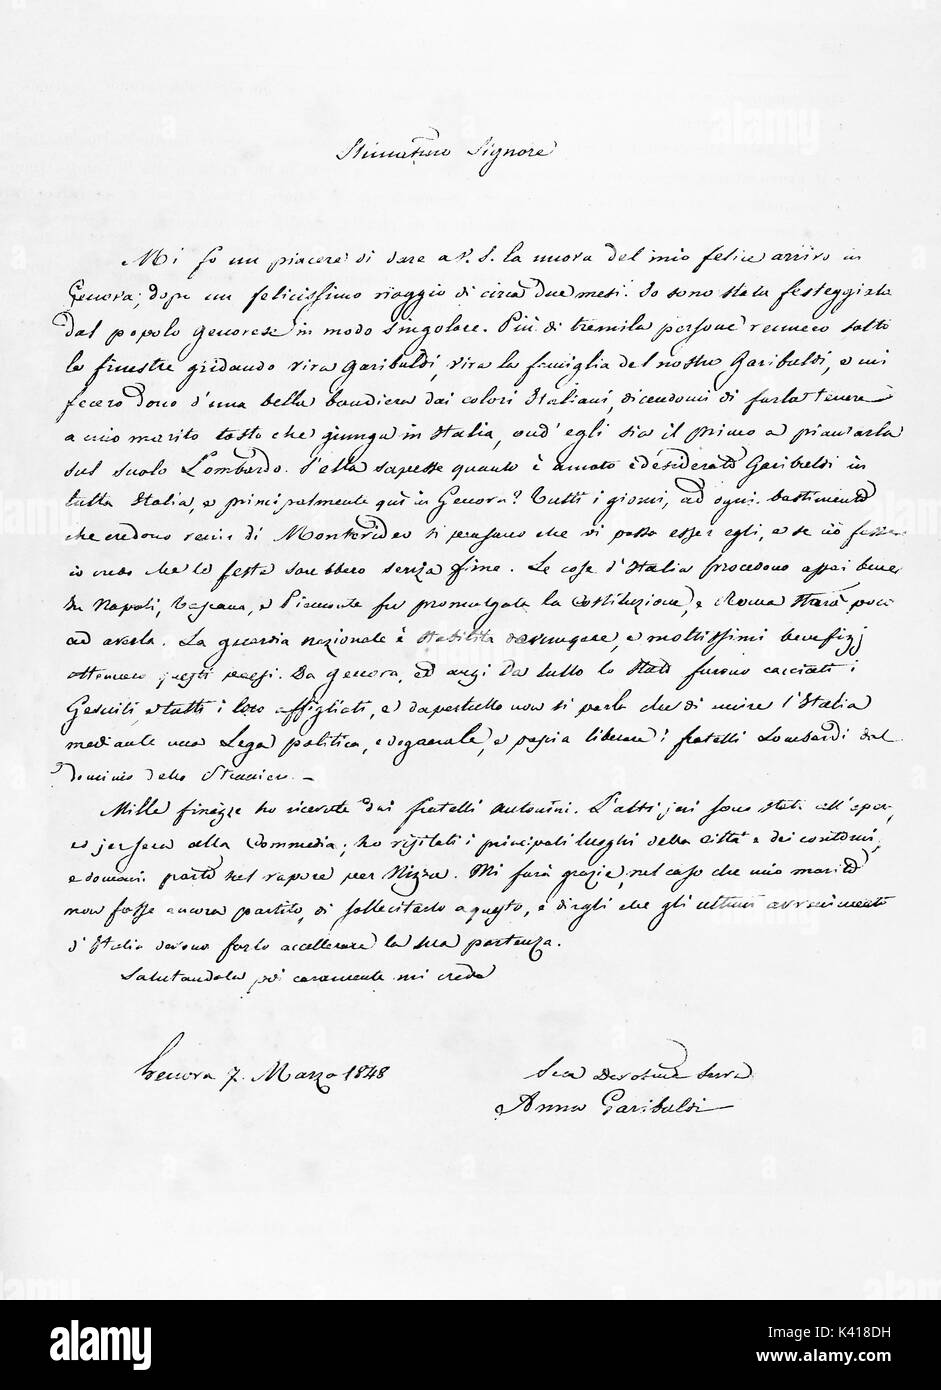 Stimatissmo Signore
Mi fo un piacere di dare a V. S. la nuova del mio felice arrivo in
Genova, dopo un felicissimo viaggio di circa due mesi. Io sono stata festeggiata
dal popolo Genovese in modo singolare. Più di tremila persone vennero sotto
le finestre gridando viva Garibaldi, viva la famiglia del nostro Garibaldi, e mi
fecero dono d'una bella bandiera dai colori Italiani, dicendomi di farla tenere
a mio marito tosto che giunga in Italia, ond' egli sia il primo a piantarla
sul suolo Lombardo. S'ella sapesse quanto è amato e desiderato Garibaldi in
tutta Italia, e principalmente quì in Genova? Tutti i giorni, ad ogni bastimento
che credono venir di Montevideo si pensano che vi possa esser egli, e se ciò fosse
io credo che le feste sarebbero senza fine. Le cose d'Italia procedono assai bene
In Napoli, Toscana, e Piemonte fu promulgata la Costituzione, e Roma starà poco
ad averla. La guardia nazionale è stabilita dovunque, e moltissimi benefizj
ottennero questi paesi. Da Genova, ed anzi da tutto lo Stato furono cacciati i
Gesuiti, e tutti i loro affigliati, e dapertutto non si parla che di unire l'Italia
mediante una Lega politica, e doganale, e poscia liberare i fratelli Lombardi dal
dominio dello Straniero. –
Mille finezze ho ricevute dai fratelli Antonini. L'altr'jeri sono stata all'opera,
ed jersera alla Commedia; ho visitati i principali luoghi della città e dei contorni,
e domani parto col vapore per Nizza. Mi farà grazia, nel caso che mio marito
non fosse ancora partito, di sollecitarlo a questo, e dirgli che gli ultimi avvenimenti
d'Italia devono farlo accellerare la sua partenza.
Salutandola poi caramente mi creda
Genova 7. Marzo 1848
Sua Devotma Serva
Anna Garibaldi
alamy
Image ID: K418DH
www.alamy.com